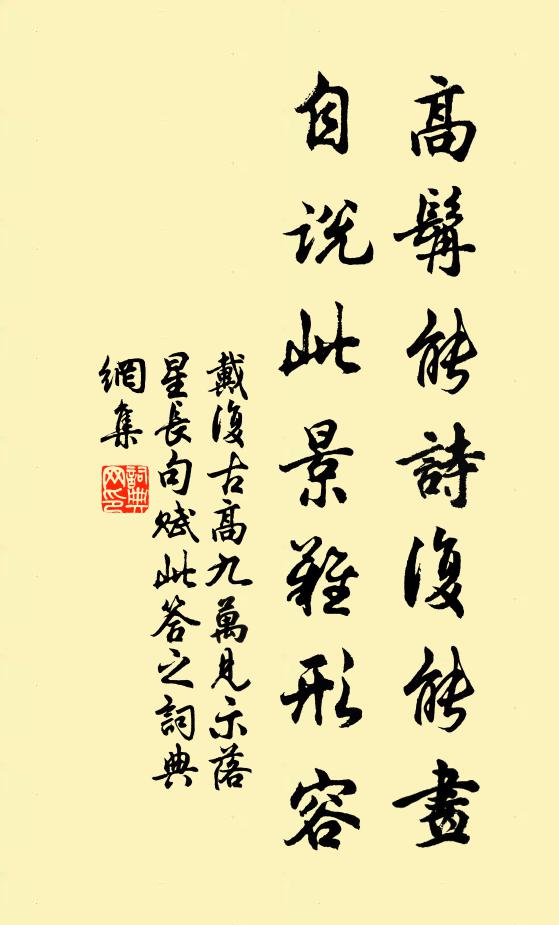 高髯能詩復能畫
自說此景難形容
戴復古高九萬見示落
星長句賦此答之詞典
網集
詞典網印